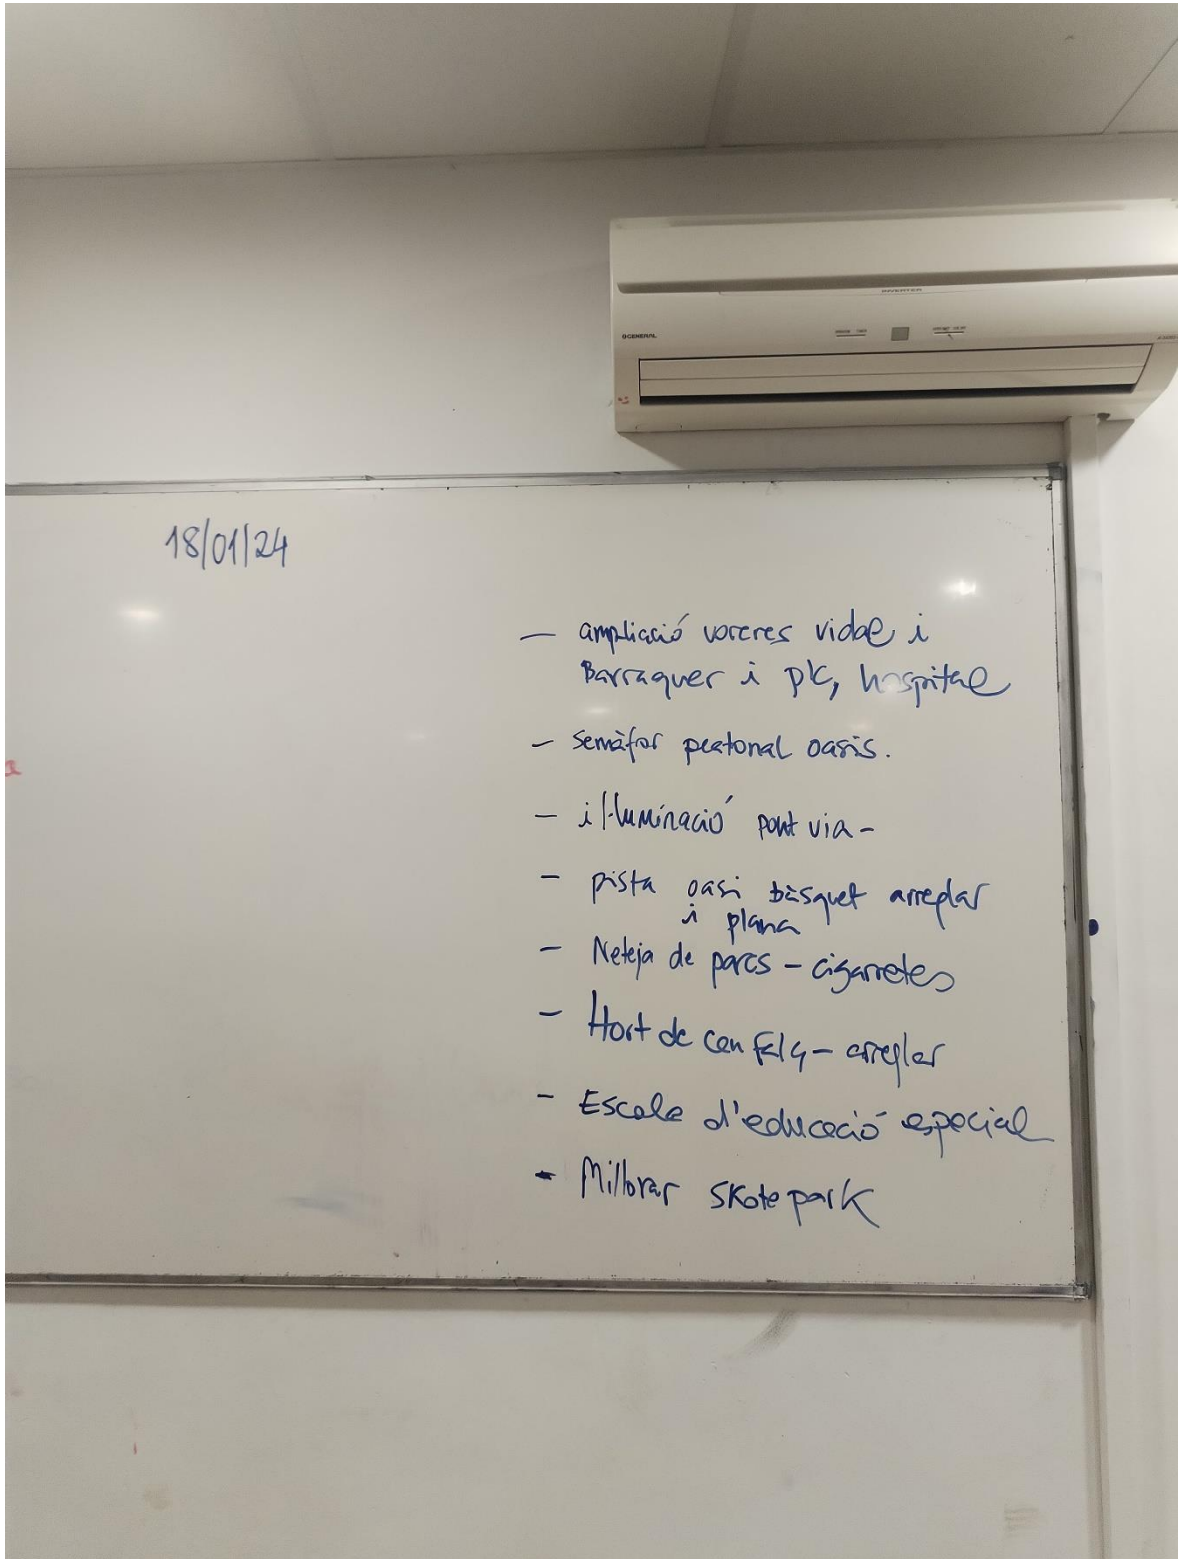 INVERTER
GENERAL
18/01/24
— ampliació voreres vidal i
Barraquer i pk, hospital
— semàfor peatonal oasis.
— il·luminació pont via -
- pista oasi bàsquet arreglar
i plana
- Neteja de parcs - cigarretes
- Hort de can Falç - arreglar
- Escola d'educació especial
- Millorar skate park